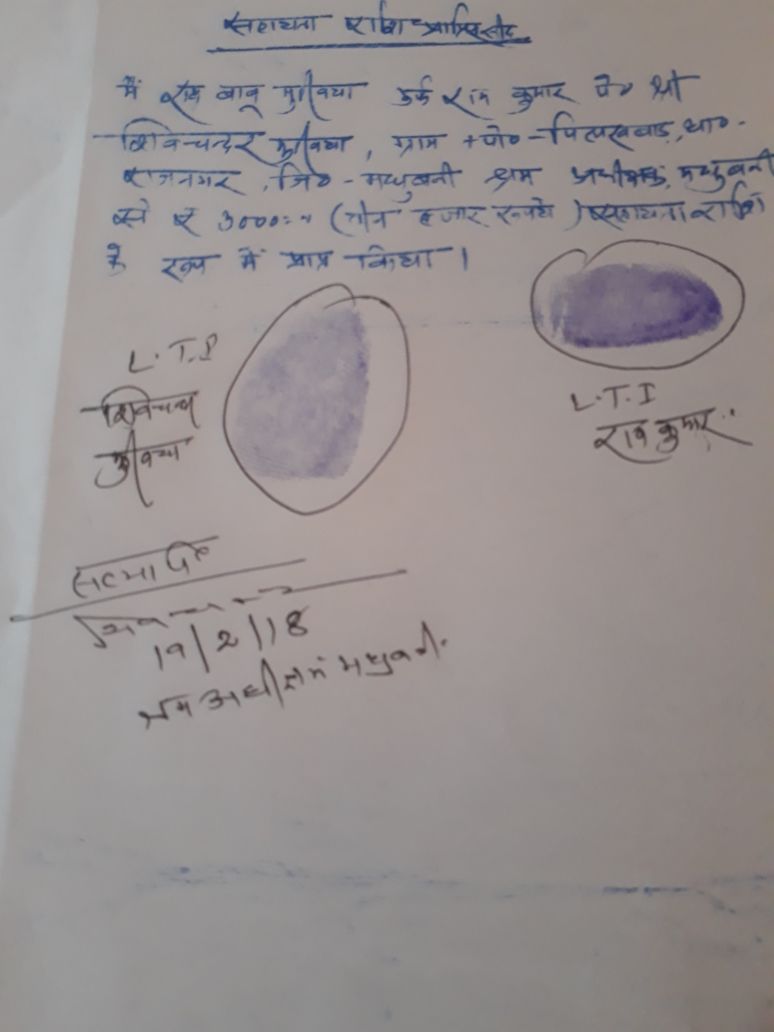 सहायता राशि प्राप्ति रसीद
मैं राम बाबू मुखिया उर्फ राम कुमार पे० श्री
शिवचन्दर मुखिया, ग्राम + पो० - पिलखवाड़, था० -
राजनगर, जि० - मधुबनी श्रम अधीक्षक, मधुबनी
से रु 3000=00 (तीन हजार रूपये) सहायता राशि
के रूप में प्राप्त किया।
L.T.I
शिवचन्द्र
मुखिया
L.T.I
राम कुमार
सत्यापित
19/2/18
श्रम अधीक्षक मधुबनी.